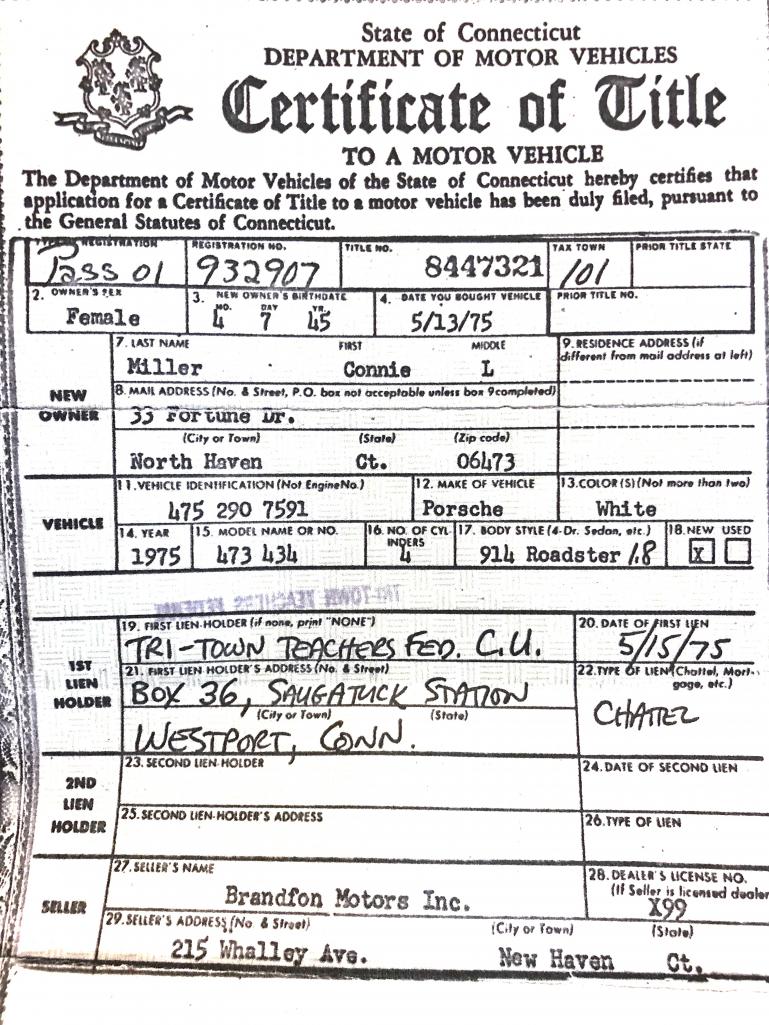 State of Connecticut
DEPARTMENT OF MOTOR VEHICLES
Certificate of Title
TO A MOTOR VEHICLE
The Department of Motor Vehicles of the State of Connecticut hereby certifies that
application for a Certificate of Title to a motor vehicle has been duly filed, pursuant to
the General Statutes of Connecticut.
REGISTRATION REGISTRATION NO. TITLE NO. TAX TOWN PRIOR TITLE STATE
Pass 01 932907 8447321 101
2. OWNER'S SEX 3. NEW OWNER'S BIRTHDATE 4. DATE YOU BOUGHT VEHICLE PRIOR TITLE NO.
MO. DAY YR.
Female 4 7 45 5/13/75
NEW OWNER
7. LAST NAME FIRST MIDDLE 9. RESIDENCE ADDRESS (if
different from mail address at left)
Miller Connie L
8. MAIL ADDRESS (No. & Street, P.O. box not acceptable unless box 9 completed)
33 Fortune Dr.
(City or Town) (State) (Zip code)
North Haven Ct. 06473
VEHICLE
11. VEHICLE IDENTIFICATION (Not Engine No.) 12. MAKE OF VEHICLE 13. COLOR (S) (Not more than two)
475 290 7591 Porsche White
14. YEAR 15. MODEL NAME OR NO. 16. NO. OF CYL- INDERS 17. BODY STYLE (4-Dr. Sedan, etc.) 18. NEW USED
1975 473 434 4 914 Roadster 1.8 X
TRI-TOWN TEACHERS FEDERAL
1ST LIEN HOLDER
19. FIRST LIEN-HOLDER (if none, print "NONE") 20. DATE OF FIRST LIEN
TRI-TOWN TEACHERS FED. C.U. 5/15/75
21. FIRST LIEN-HOLDER'S ADDRESS (No. & Street) 22. TYPE OF LIEN (Chattel, Mort-
gage, etc.)
BOX 36, SAUGATUCK STATION CHATTEL
(City or Town) (State)
WESTPORT, CONN.
2ND LIEN HOLDER
23. SECOND LIEN-HOLDER 24. DATE OF SECOND LIEN
25. SECOND LIEN-HOLDER'S ADDRESS 26. TYPE OF LIEN
SELLER
27. SELLER'S NAME 28. DEALER'S LICENSE NO.
(If Seller is licensed dealer
Brandfon Motors Inc. X99
29. SELLER'S ADDRESS (No. & Street) (City or Town) (State)
215 Whalley Ave. New Haven Ct.